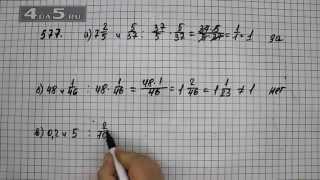 4ДА5.РУ
577. а) 7 2/5 и 5/37 : 37/5 · 5/37 = 37·5/5·37 = 1/1 = 1 да
б) 48 и 1/46 : 48 · 1/46 = 48·1/46 = 1 2/46 = 1 1/23 ≠ 1 нет
в) 0,2 и 5 : 2/10